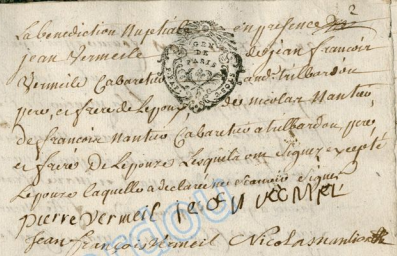 2
La benediction Nuptiale en presence
jean Vermeile de jean francois
Vermeile Cabaretie trilbardou
GEN
DE
PARIS
pere, et frere de Lepoux, de nicolas Nantier
de francois nantier Cabaretier a trilbardou, pere
et frere de Lepouze Lesquels ont Signez excepté
Lepouze laquelle a declaré ne Scavoir Signer
pierre vermeil jean vermeil
jean françois vermeil Nicolas nantier